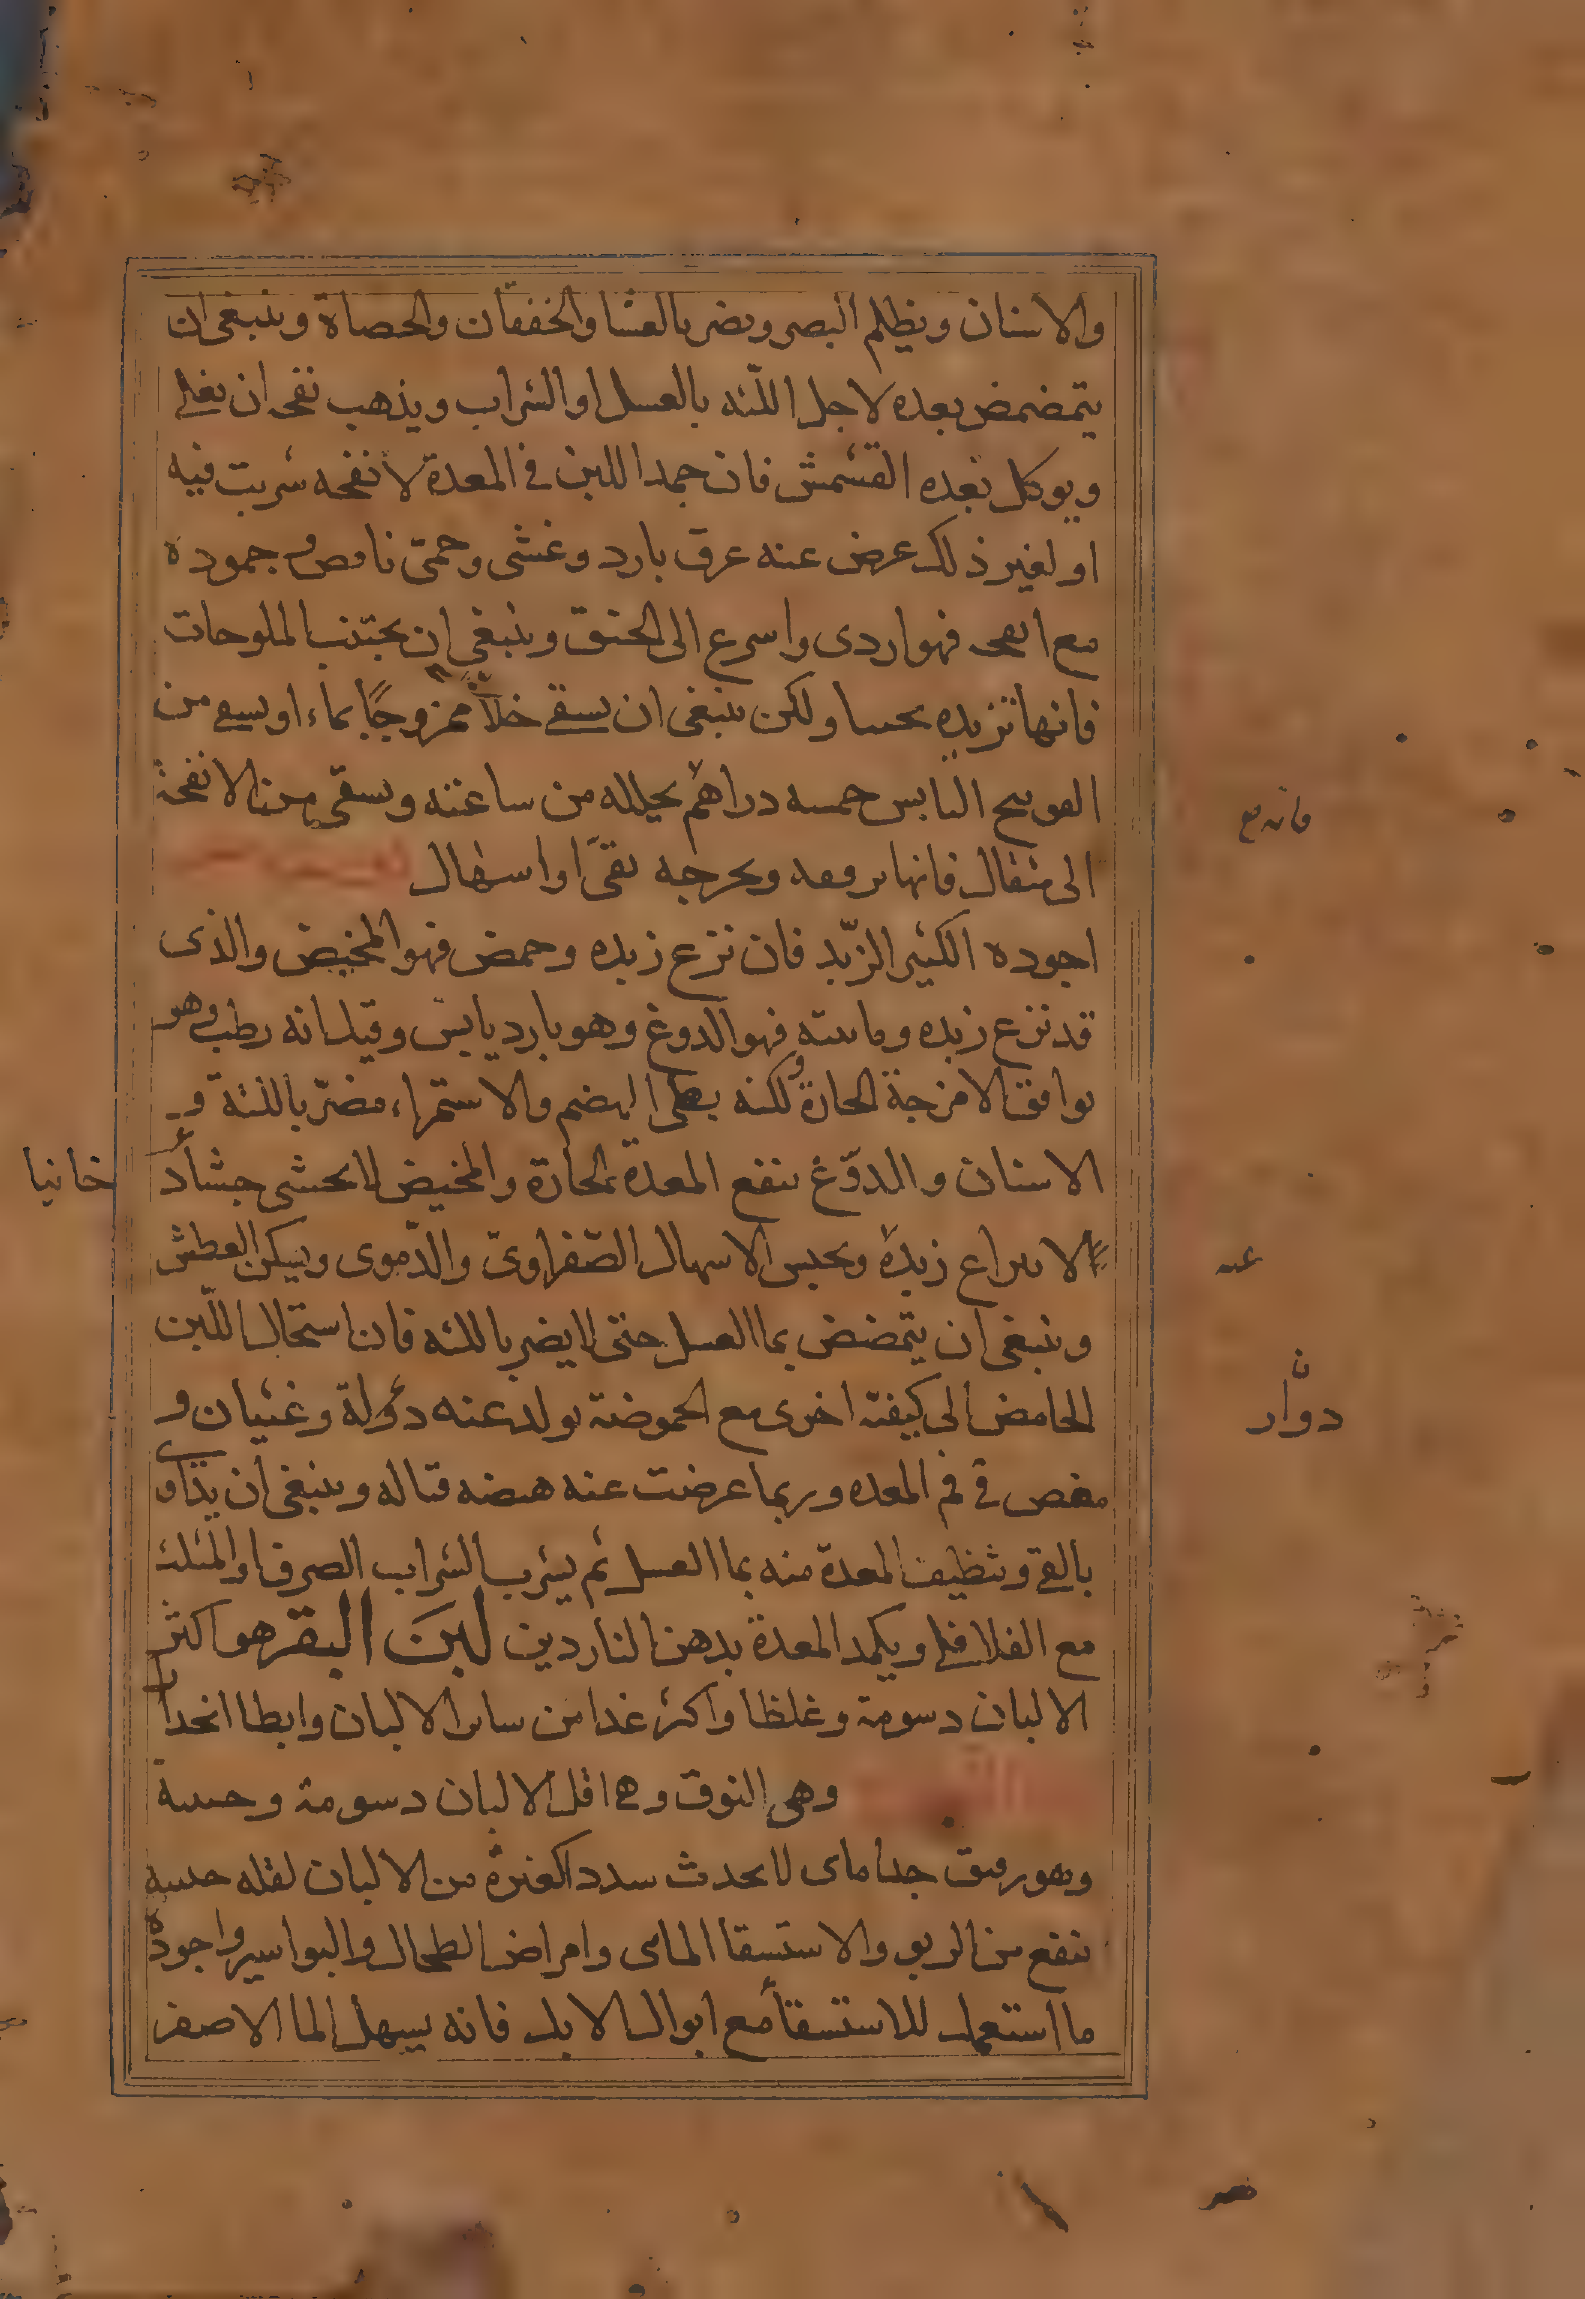 والاسنان ويظلم البصر ويضر بالغشا والخفقان والحصاة وينبغى ان
يتمضمض بعده لاجل اللثه بالعسل او الشراب ويذهب نفخه ان يغلى
ويوكل بعده القشمش فان جمد اللبن فى المعدة لانفحه شربت فيه
او لغير ذلك عرض عنه عرق بارد وغشى وحمى نافض وجموده
مع انفحه فهو اردى واسرع الى الخنق وينبغى ان يجتنب الملوحات
فانها تزيده تجبنا ولكن ينبغى ان يسقى خلاً ممزوجًا بماء او يسقى من
الفوتنج اليابس خمسه دراهم يحلله من ساعته ويسقى من الانفحة
الى مثقال فانها ترققه ويخرجه بقئ او اسهال
اجوده الكثير الزبد فان نزع زبده وحمض فهو المخيض والذى
قد نزع زبده ومائيته فهو الدوغ وهو بارد يابس وقيل انه رطب وهو
يوافق الامزجة الحارة ولكنه بطى الهضم والاستمراء مضرّ باللثة و
الاسنان والدوغ ينفع المعدة الحارة والمخيض لا يجشى جشأ د
خانيا
لا نتزاع زبده ويحبس الاسهال الصفراوى والدموى ويسكن العطش
عنه
وينبغى ان يتمضمض بما العسل حتى لا يضر باللثه فان استحال اللبن
الحامض الى كيفية اخرى مع الحموضة يولد عنه دوّلة وغثيان و
دوّار
مغص فى فم المعده وربما عرضت عنه هيضه قتاله وينبغى ان يتداوى
بالقئ وتنظيف المعدة منه بما العسل ثم يشرب الشراب الصرف او المثلث
مع الفلافلى ويكمد المعدة بدهن الناردين لبن البقر هو اكثر
الالبان دسومة وغلظا واكثر غدا من سائر الالبان وابطا انحدارا
وهى النوق وهى اقل الالبان دسومة وجبنية
وهو رقيق جدا مائى لا يحدث سددا كغيره من الالبان لقله جبنيه
ينفع من الربو والاستسقا المائى وامراض الطحال والبواسير واجوده
ما استعمل للاستسقأ مع ابوال الابل فانه يسهل الما الاصفر